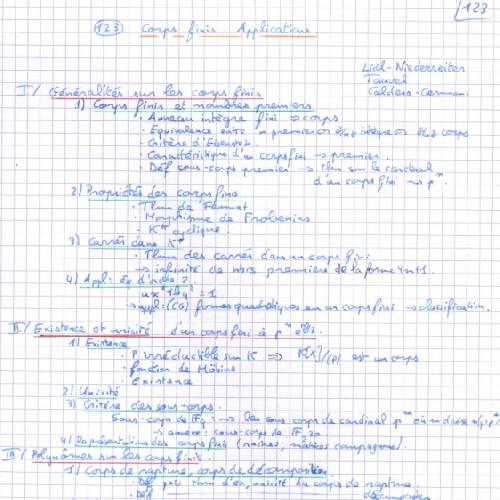 123
123 Corps finis. Applications
Lidl-Niederreiter
Tauvel
Caldero-Germoni
I/ Généralités sur les corps finis
1) Corps finis et nombres premiers
· Anneau intègre fini ⇒ corps
· Equivalence entre n premier
· Critère d'Eisenstein
· Caractéristique d'un corps fini → premier.
· Déf sous-corps premier → thm sur le cardinal
d'un corps fini
2) Propriétés des corps finis
· Thm de Fermat
· Morphisme de Frobenius
· K* cyclique.
3) Carrés dans K*
· Thm des carrés dans un corps fini
→ infinité de nbres premiers de la forme 4m+1.
4) Appl:
ax²+by²=1
formes quadratiques sur un corps fini → classification.
II/ Existence et unicité d'un corps fini à pⁿ élts.
1) Existence
· P irréductible sur K ⇒ K[X]/(P) est un corps
· fonction de Möbius
· Existence
2) Unicité
3) Critère des sous-corps.
Sous-corps de Fq : les sous corps de cardinal
4) Représentations des corps finis (racines, matrices compagnons).
III/ Polynômes sur les corps finis.
1) Corps de rupture, corps de décomposition.
· Déf puis thm d'ex, unicité du corps de rupture.
· Déf décomposition